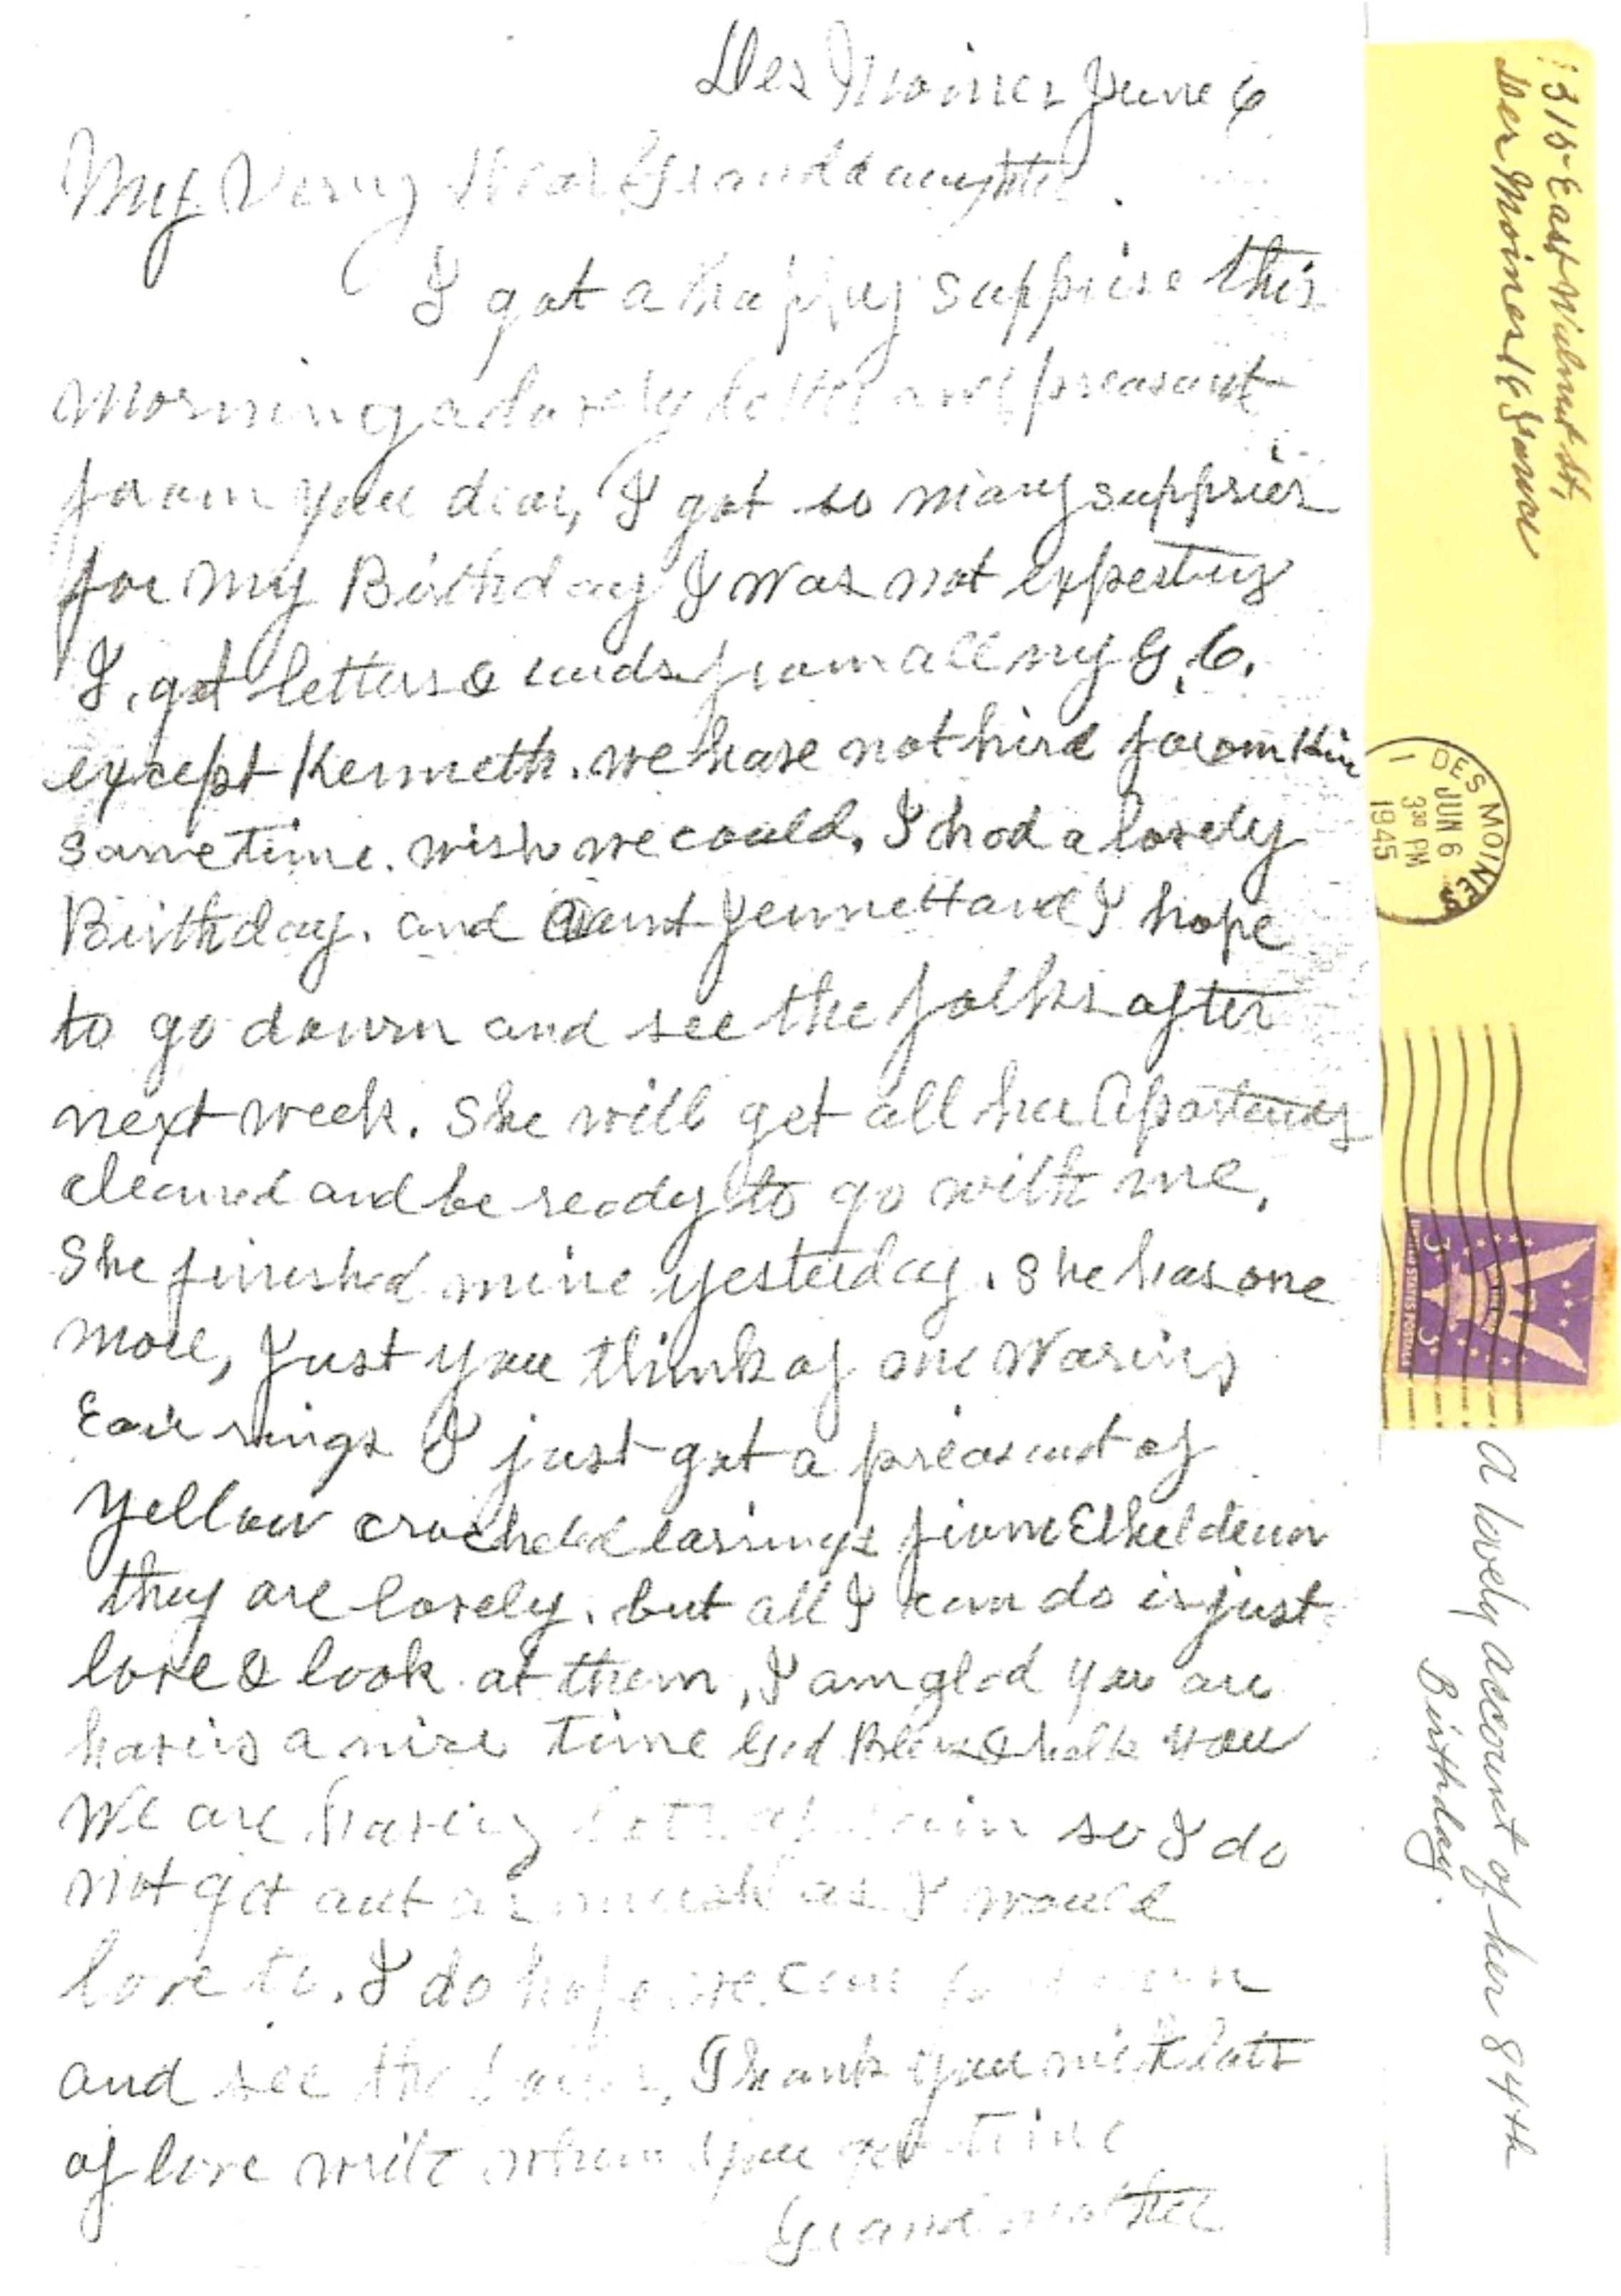 Des Moines June 6
My Very Dear Granddaughter.
I got a happy supprise this
morning a lovely letter and preasant
from you dear, I got so many supprises
for my Birthday I was not expecting
I got letters & cards from all my G.C.
except Kenneth. we have not hird from Him
sometime. wish we could, I had a lovely
Birthday. and Aunt Jennett and I hope
to go down and see the folks after
next week. She will get all her Apartments
cleaned and be ready to go with me,
She finished mine yesterday. She has one
more, Just you think of me Waring
Ear rings I just got a preasant of
Yellow crocheted earrings from
they are lovely. but all I can do is just
love & look at them, I am glad you are
having a nice time God Bless & help you
We are having lots of rain so I do
not get out as much as I would
love to. I do hope we can go down
and see the folks, Thank you with lots
of love write when you get time
Grandmother
1315 East Walnut St,
Des Moines 16 Iowa
DES MOINES
JUN 6
3 30 PM
1945
1
UNITED STATES POSTAGE
3¢ 3¢
A lovely account of her 84th
Birthday.